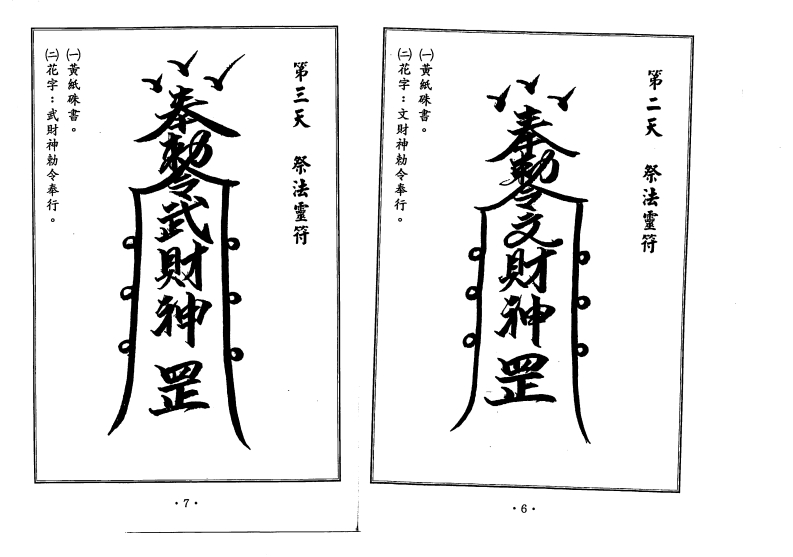 第二天　祭法靈符
奉勅令文財神罡
㈠黃紙硃書。
㈡花字：文財神勅令奉行。
·6·
第三天　祭法靈符
奉勅令武財神罡
㈠黃紙硃書。
㈡花字：武財神勅令奉行。
·7·